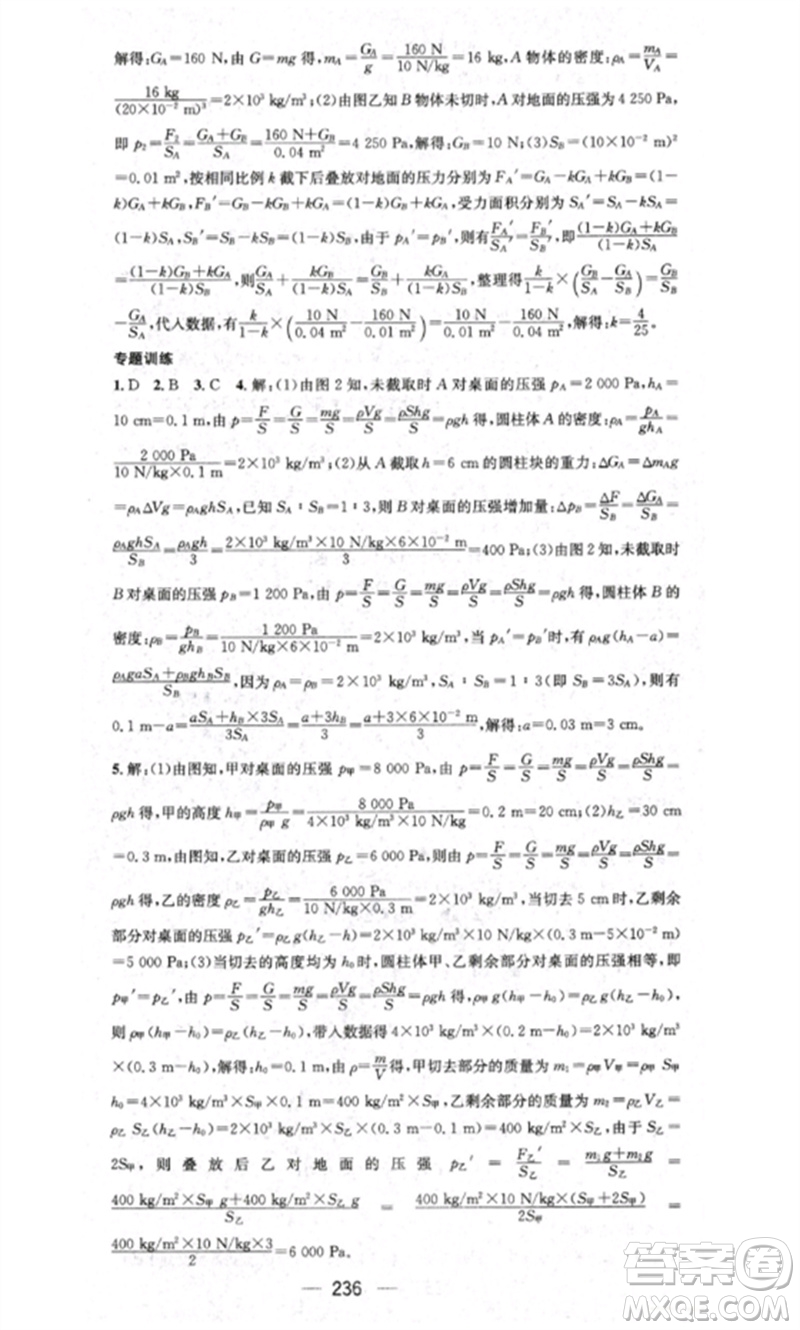 解得:G_A=160 N,由 G=mg 得,m_A=G_A/g=160 N/10 N/kg=16 kg,A 物体的密度:ρ_A=m_A/V_A=
16 kg/(20×10⁻² m)³=2×10³ kg/m³;(2)由图乙知 B 物体未切时,A 对地面的压强为 4 250 Pa,
即 p₂=F₂/S_A=(G_A+G_B)/S_A=(160 N+G_B)/0.04 m²=4 250 Pa,解得:G_B=10 N;(3)S_B=(10×10⁻² m)²=
0.01 m²,按相同比例 k 截下后叠放对地面的压力分别为 F_A′=G_A-kG_A+kG_B=(1-
k)G_A+kG_B,F_B′=G_B-kG_B+kG_A=(1-k)G_B+kG_A,受力面积分别为 S_A′=S_A-kS_A=
(1-k)S_A,S_B′=S_B-kS_B=(1-k)S_B,由于 p_A′=p_B′,则有 F_A′/S_A′=F_B′/S_B′,即 ((1-k)G_A+kG_B)/((1-k)S_A)
=((1-k)G_B+kG_A)/((1-k)S_B),则 G_A/S_A+kG_B/((1-k)S_A)=G_B/S_B+kG_A/((1-k)S_B),整理得 k/(1-k)×(G_B/S_A-G_A/S_B)=G_B/S_B
-G_A/S_A,代入数据,有 k/(1-k)×(10 N/0.04 m²-160 N/0.01 m²)=10 N/0.01 m²-160 N/0.04 m²,解得:k=4/25。
专题训练
1. D 2. B 3. C 4. 解:(1)由图 2 知,未截取时 A 对桌面的压强 p_A=2 000 Pa,h_A=
10 cm=0.1 m,由 p=F/S=G/S=mg/S=ρVg/S=ρShg/S=ρgh 得,圆柱体 A 的密度:ρ_A=p_A/gh_A=
2 000 Pa/(10 N/kg×0.1 m)=2×10³ kg/m³;(2)从 A 截取 h=6 cm 的圆柱块的重力:ΔG_A=Δm_A g
=ρ_AΔVg=ρ_AghS_A,已知 S_A∶S_B=1∶3,则 B 对桌面的压强增加量:Δp_B=ΔF/S_B=ΔG_A/S_B=
ρ_AghS_A/S_B=ρ_Agh/3=(2×10³ kg/m³×10 N/kg×6×10⁻² m)/3=400 Pa;(3)由图知,未截取时
B 对桌面的压强 p_B=1 200 Pa,由 p=F/S=G/S=mg/S=ρVg/S=ρShg/S=ρgh 得,圆柱体 B 的
密度:ρ_B=p_B/gh_B=1 200 Pa/(10 N/kg×6×10⁻² m)=2×10³ kg/m³,当 p_A′=p_B′时,有 ρ_Ag(h_A-a)=
(ρ_AgaS_A+ρ_Bgh_BS_B)/S_B,因为 ρ_A=ρ_B=2×10³ kg/m³,S_A∶S_B=1∶3(即 S_B=3S_A),则有
0.1 m-a=(aS_A+h_B×3S_A)/3S_A=(a+3h_B)/3=(a+3×6×10⁻² m)/3,解得:a=0.03 m=3 cm。
5. 解:(1)由图知,甲对桌面的压强 p甲=8 000 Pa,由 p=F/S=G/S=mg/S=ρVg/S=ρShg/S=
ρgh 得,甲的高度 h甲=p甲/ρ甲g=8 000 Pa/(4×10³ kg/m³×10 N/kg)=0.2 m=20 cm;(2)h乙=30 cm
=0.3 m,由图知,乙对桌面的压强 p乙=6 000 Pa,则由 p=F/S=G/S=mg/S=ρVg/S=ρShg/S=
ρgh 得,乙的密度 ρ乙=p乙/gh乙=6 000 Pa/(10 N/kg×0.3 m)=2×10³ kg/m³,当切去 5 cm 时,乙剩余
部分对桌面的压强 p乙′=ρ乙g(h乙-h)=2×10³ kg/m³×10 N/kg×(0.3 m-5×10⁻² m)
=5 000 Pa;(3)当切去的高度均为 h₀时,圆柱体甲、乙剩余部分对桌面的压强相等,即
p甲′=p乙′,由 p=F/S=G/S=mg/S=ρVg/S=ρShg/S=ρgh 得,ρ甲g(h甲-h₀)=ρ乙g(h乙-h₀),
则 ρ甲(h甲-h₀)=ρ乙(h乙-h₀),带入数据得 4×10³ kg/m³×(0.2 m-h₀)=2×10³ kg/m³
×(0.3 m-h₀),解得:h₀=0.1 m,由 ρ=m/V得,甲切去部分的质量为 m₁=ρ甲V甲=ρ甲S甲
h₀=4×10³ kg/m³×S甲×0.1 m=400 kg/m²×S甲,乙剩余部分的质量为 m₂=ρ乙V乙=
ρ乙 S乙(h乙-h₀)=2×10³ kg/m³×S乙×(0.3 m-0.1 m)=400 kg/m²×S乙,由于 S乙=
2S甲,则叠放后乙对地面的压强 p乙′=F乙′/S乙=(m₁g+m₂g)/S乙=
(400 kg/m²×S甲 g+400 kg/m²×S乙 g)/S乙=(400 kg/m²×10 N/kg×(S甲+2S甲))/2S甲=
(400 kg/m²×10 N/kg×3)/2=6 000 Pa。
236
答案卷
MXQE.COM